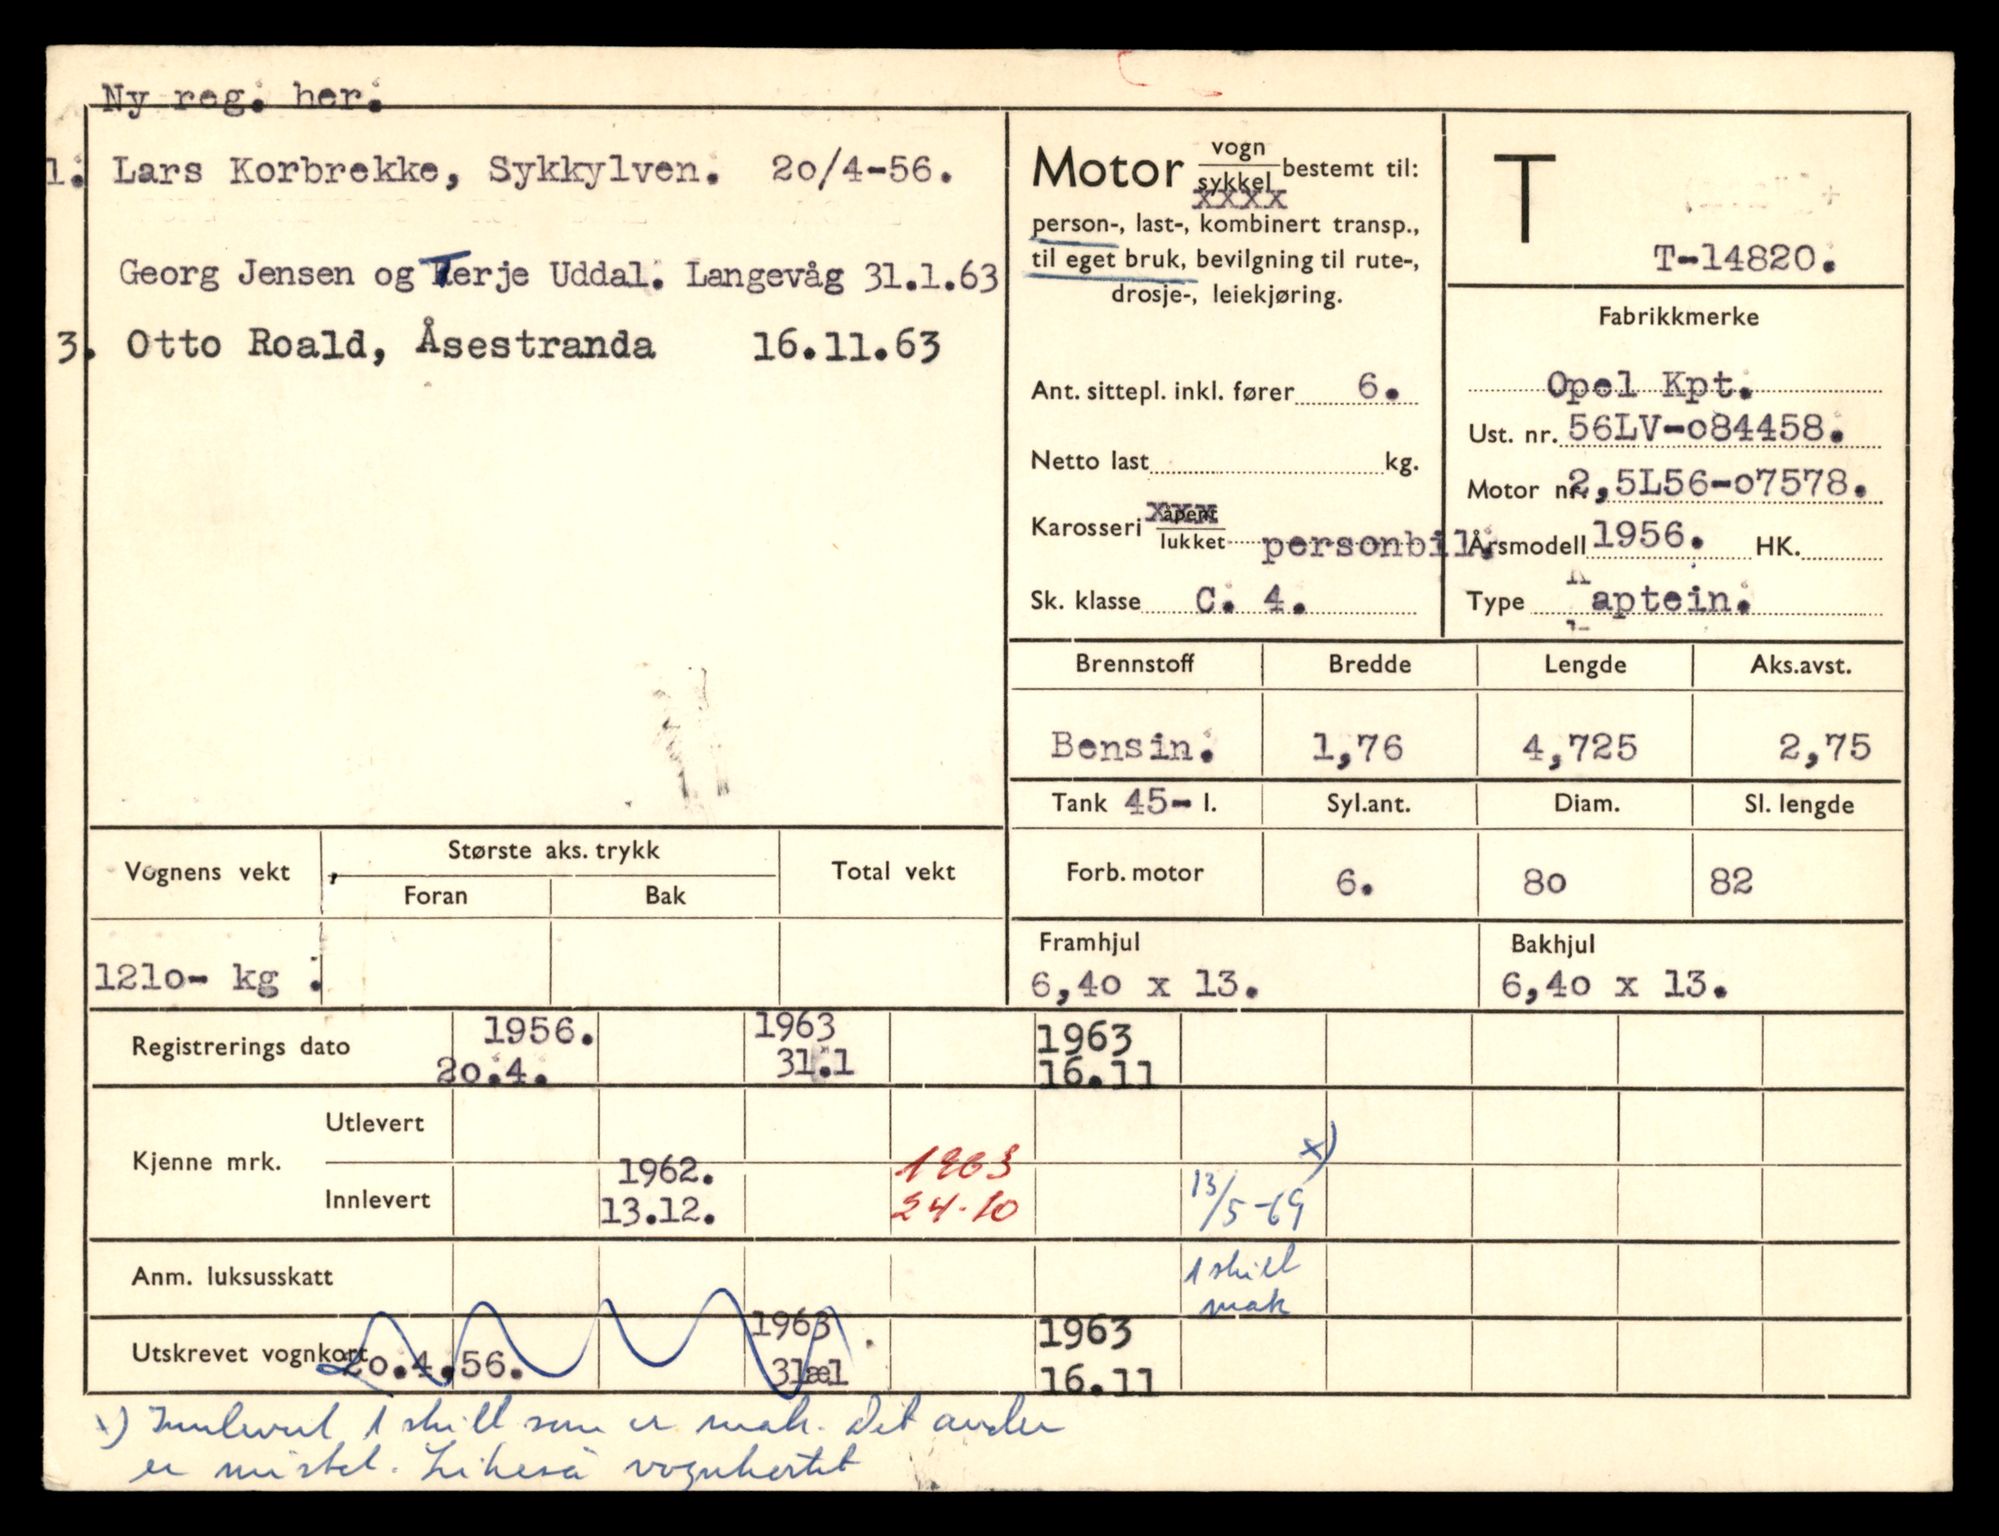 Ny reg. her.
1. Lars Korbrekke, Sykkylven. 20/4-56.
Georg Jensen og Terje Uddal. Langevåg 31.1.63
3. Otto Roald, Åsestranda 16.11.63
Motor vogn bestemt til:
sykkel
xxxx
person-, last-, kombinert transp.,
til eget bruk, bevilgning til rute-,
drosje-, leiekjøring.
Ant. sittepl. inkl. fører 6.
Netto last kg.
xxx
åpent
Karosseri
lukket personbil.
Sk. klasse C. 4.
T
T-14820.
Fabrikkmerke
Opel Kpt.
Ust. nr. 56LV-084458.
Motor nr. 2,5L56-07578.
Årsmodell 1956. HK.
Type Kaptein.
Brennstoff Bredde Lengde Aks.avst.
Bensin. 1,76 4,725 2,75
Tank 45- l. Syl.ant. Diam. Sl. lengde
Forb. motor 6. 80 82
Framhjul Bakhjul
6,40 x 13. 6,40 x 13.
Vognens vekt Største aks. trykk Total vekt
Foran Bak
1210- kg .
Registrerings dato 1956. 1963 1963
20.4. 31.1 16.11
Kjenne mrk.
Utlevert x)
Innlevert 1962. 1963 13/5-69
13.12. 24-10
Anm. luksusskatt 1 skilt
mak
Utskrevet vognkort 20.4.56. 1963 1963
31æl 16.11
x) Innlevert 1 skilt som er mak. Det andre
er mistet. Likeså vognkortet